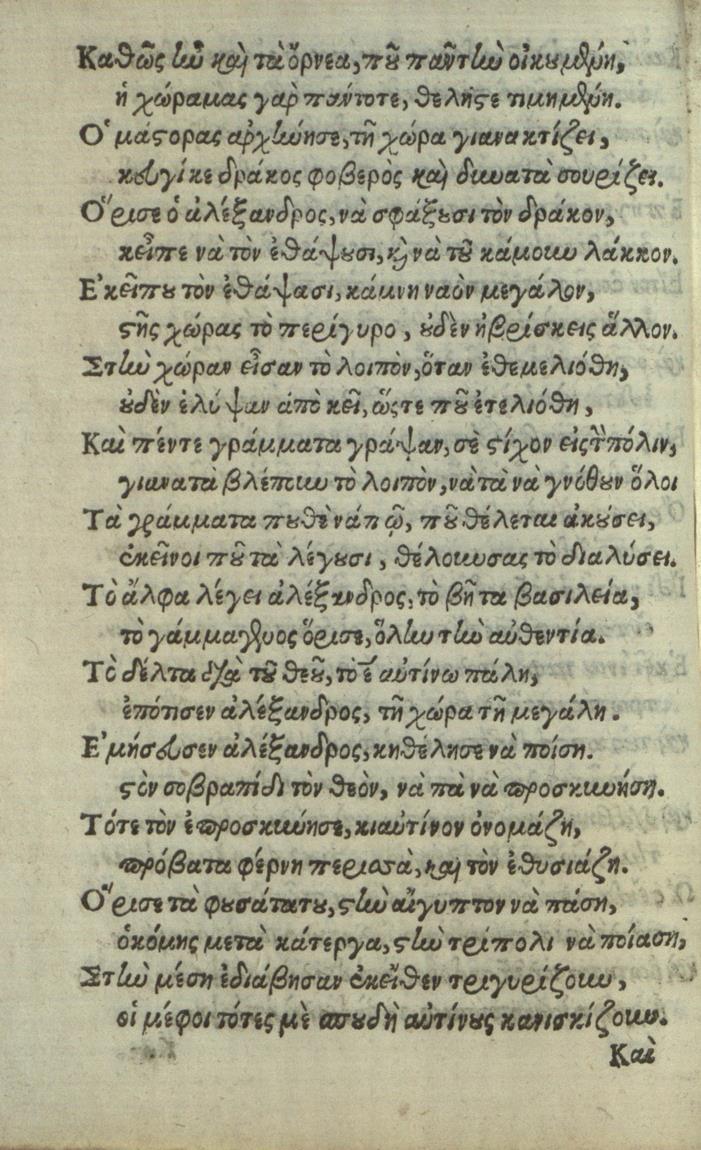 Καθῶς ἰῶ καὶ τὰ ὄρνεα, ποῦ παῦτὼ οἰκουμθύη,
ἡ χώραμας γαρ πάντοτε, θελήσε τιμημθύη.
Ο' μάςορας ἀρχίωησε, τῆ χώρα γιανα κτίζει,
κευγίκε δράκος φοβερὸς καὶ δυνατὰ σουρίζει.
Ο῞ρισε ὁ ἀλέξανδρος, νὰ σφάξουσι τὸν δράκον,
κεἶπε νὰ τὸν ἐθάψουσι, κὴ νὰ τοῦ κάμουν λάκκον.
Ε'κεῖπου τὸν ἐθάψασι, κάμνη ναὸν μεγάλον,
ςῆς χώρας τὸ περίγυρο, οὐδὲν ἠβρίσκεις ἄλλον.
Στὴν χώραν εἶσαν τὸ λοιπὸν, ὅταν ἐθεμελιόθη,
οὐδὲν ἐλύψαν ἀπὸ κεῖ, ὥςτε ποῦ ἐτελιόθη,
Καὶ πέντε γράμματα γράψαν, σὲ ςίχον εἰς τὴ πόλιν,
γιανατὰ βλέπουν τὸ λοιπὸν, νὰτὰ νὰ γνόθουν ὅλοι
Τὰ γράμματα πουθὲ νάπῶ, ποῦ θέλεται ἀκούσει,
ἐκεῖνοι ποῦ τὰ λέγουσι, θέλουν σας τὸ διαλύσει.
Τὸ ἄλφα λέγει ἀλέξανδρος, τὸ βῆτα βασιλεία,
τὸ γάμμα γένος ὅρισε, ὅλὼ τὼ αὐθεντία.
Τὸ δέλτα διὰ τοῦ θεοῦ, τὸ ε̄ αὐτίνω πάλη,
ἐπότισεν ἀλέξανδρος, τῆ χώρα τῆ μεγάλη.
Ε'μήσευσεν ἀλέξανδρος, κηθέλησε νὰ ποίση.
ςὸν σοβραπίδι τὸν θεὸν, νὰ πὰ νὰ προσκυνήση.
Τότε τὸν ἐπροσκύνησε, κιαὐτίνον ὀνομάζη,
πρόβατα φέρνη περισσὰ, καὶ τὸν ἐθυσιάζη.
Ο῞ρισε τὰ φουσάτατου, ςὼ αἴγυπτον νὰ πάση,
ὁκόμης μετὰ κάτεργα, ςὼ τρίπολι νὰ ποίαση,
Στὼ μέση ἐδιάβησαν ἐκεῖθεν τριγυρίζουν,
οἱ μέφοι τότες μὲ σπουδὴ αὐτίνους κανισκίζουν.
Καὶ